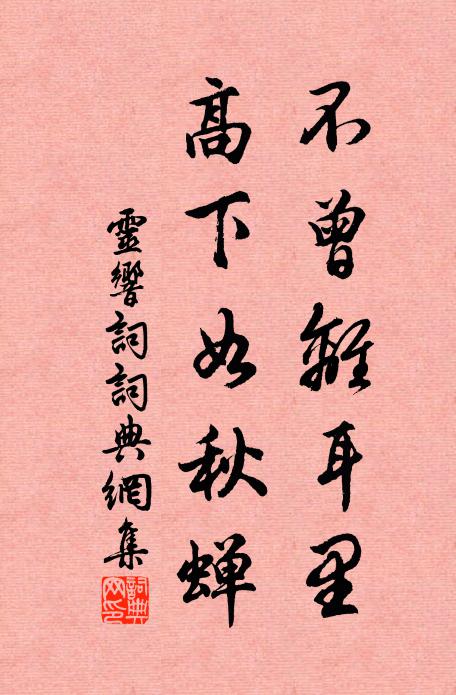 不曾離耳里
高下如秋蝉
靈響詞詞典網集
詞典
网印